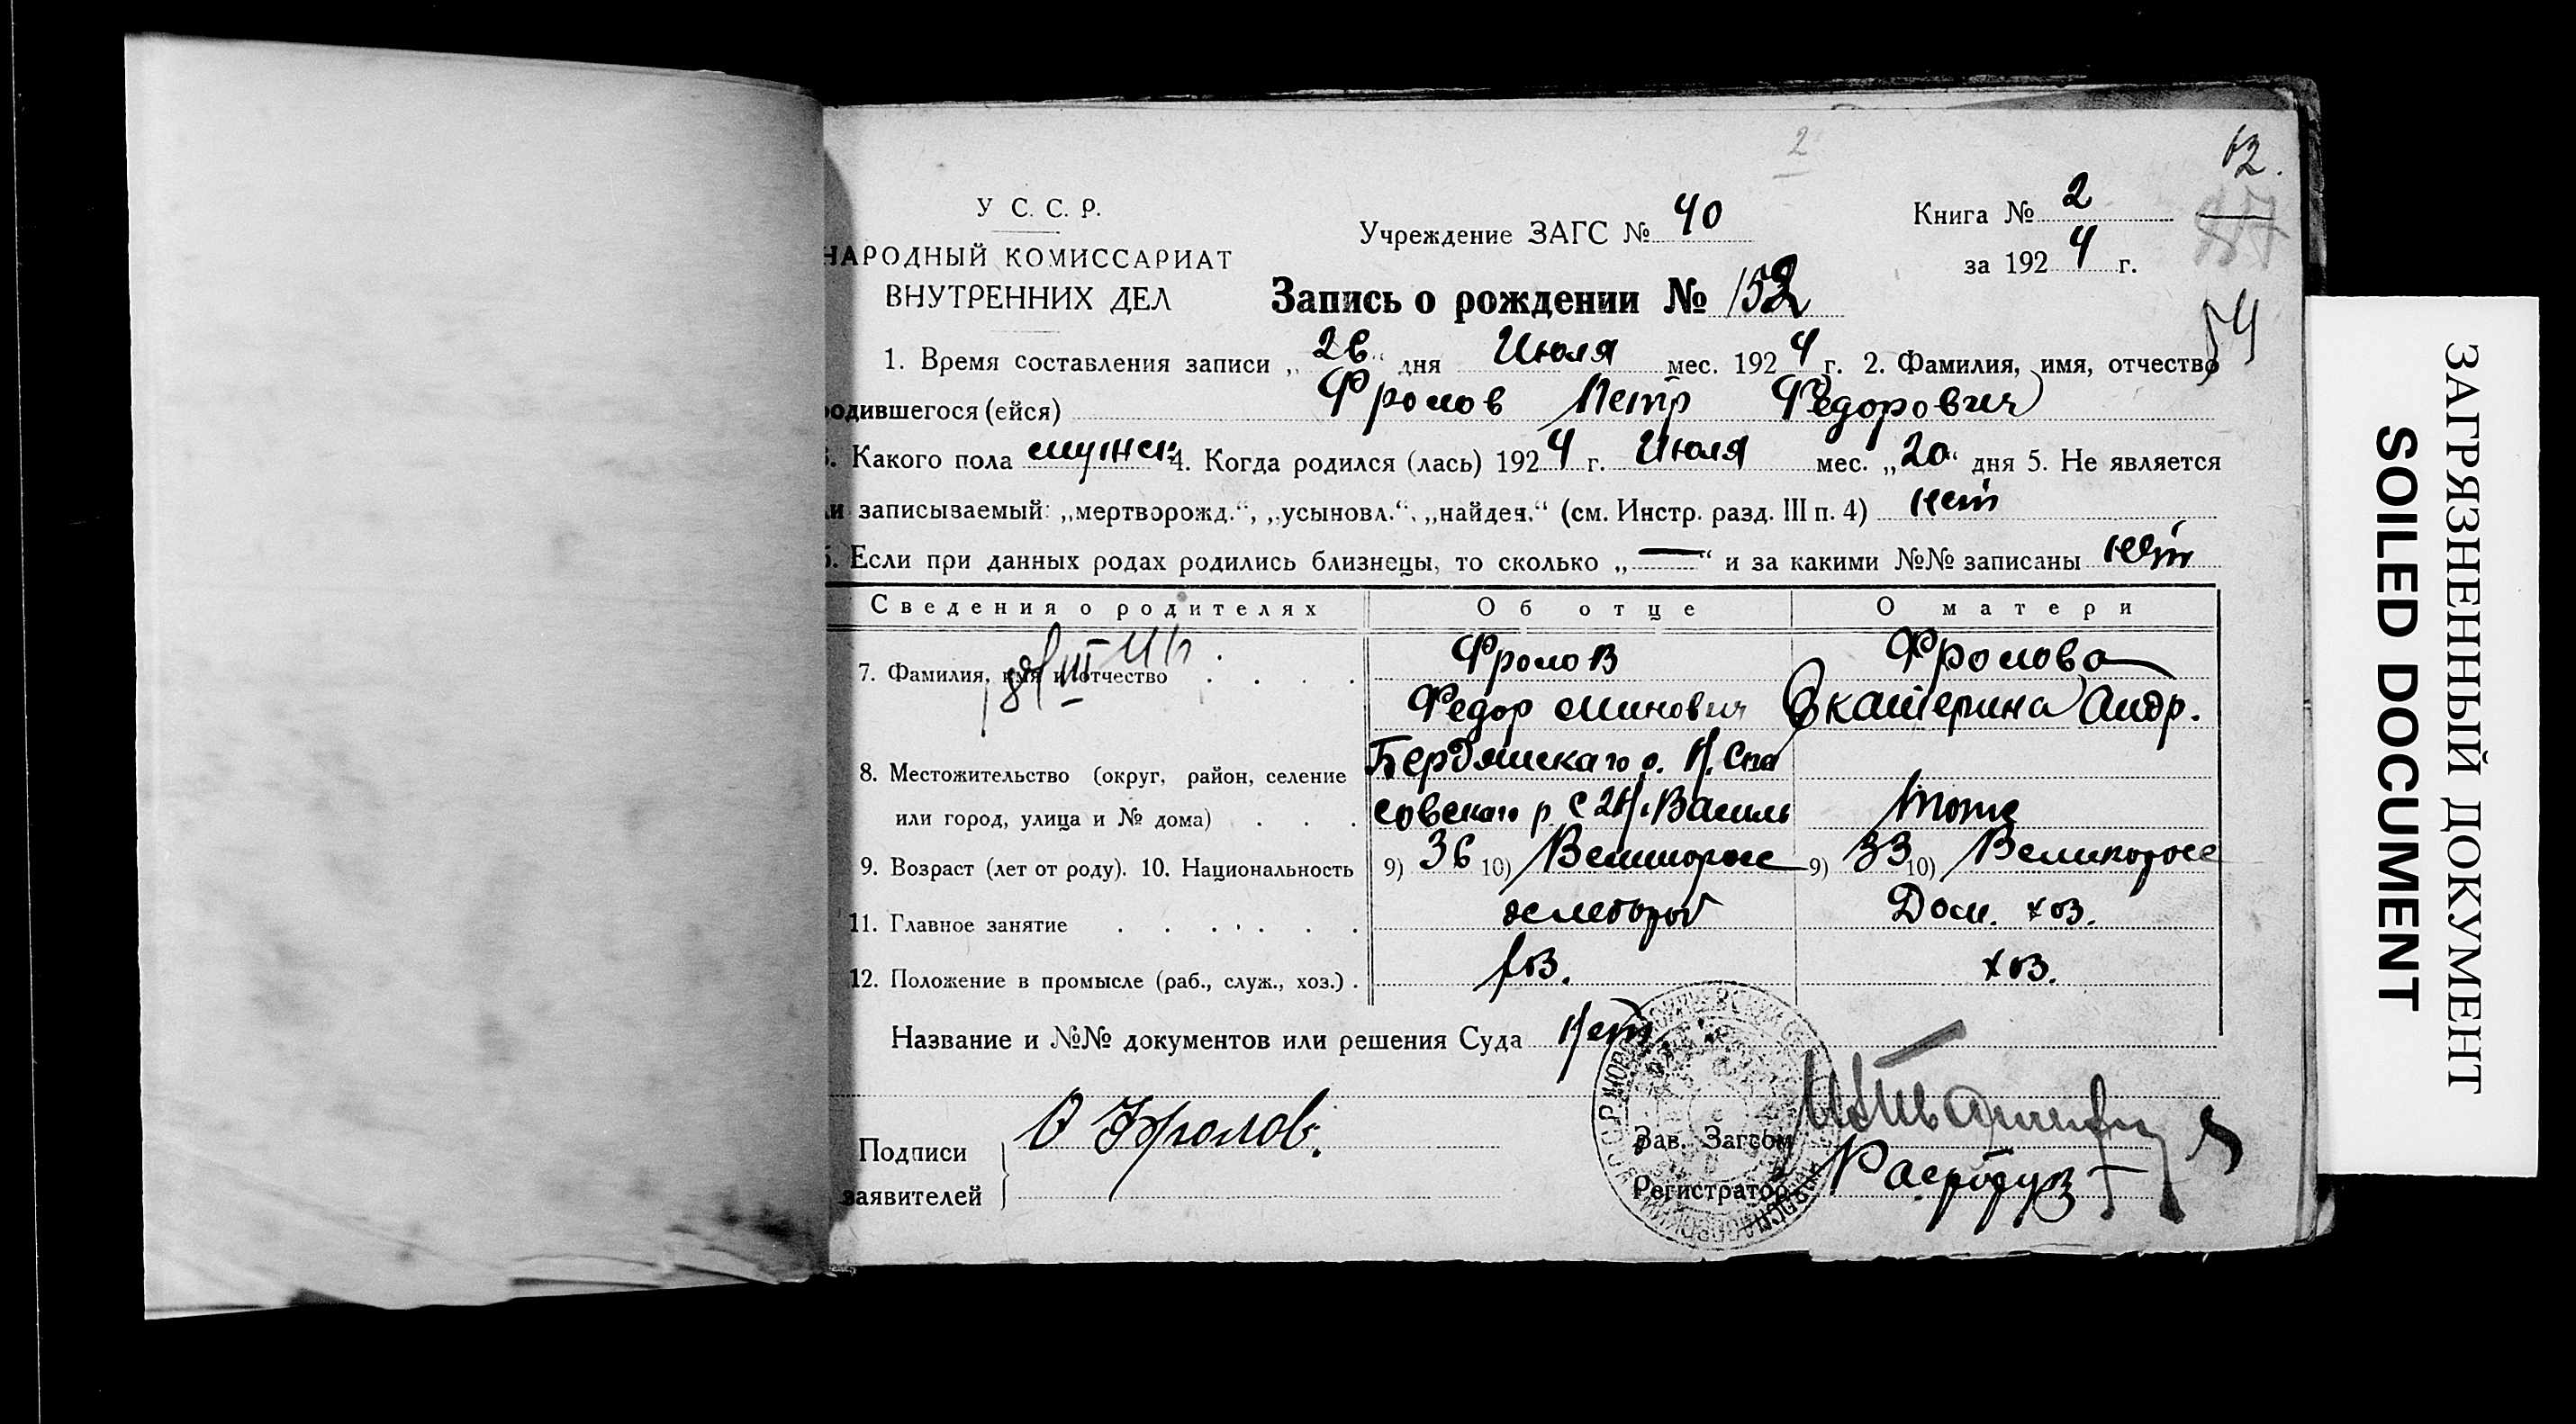 2
62.
У С. С. Р.
Учреждение ЗАГС № 40
Книга № 2
НАРОДНЫЙ КОМИССАРИАТ
за 1924 г.
ВНУТРЕННИХ ДЕЛ
Запись о рождении № 152
54
1. Время составления записи „26“ дня Июля мес. 1924 г. 2. Фамилия, имя, отчество
родившегося (ейся) Фролов Петр Федорович
3. Какого пола мужск. 4. Когда родился (лась) 1924 г. Июля мес. „20“ дня 5. Не является
ли записываемый: „мертворожд.“, „усыновл.“, „найден.“ (см. Инстр. разд. III п. 4) нет
6. Если при данных родах родились близнецы, то сколько „—“ и за какими №№ записаны нет
Сведения о родителях Об отце О матери
7. Фамилия, имя и отчество Фролов Фролова
Федор Минович Екатерина Андр.
8. Местожительство (округ, район, селение Бердянскаго о. Н. Спа
или город, улица и № дома) совскаго р. с Н. Василь тоже
9. Возраст (лет от роду). 10. Национальность 9) 36 10) Великоросс 9) 33 10) Великоросс
11. Главное занятие хлебороб Дом. хоз.
12. Положение в промысле (раб., служ., хоз.) хоз. хоз.
Название и №№ документов или решения Суда Нет
Подписи
заявителей
Фролов.
Зав. Загсом
Регистратор
ЗАГРЯЗНЕННЫЙ ДОКУМЕНТ
SOILED DOCUMENT